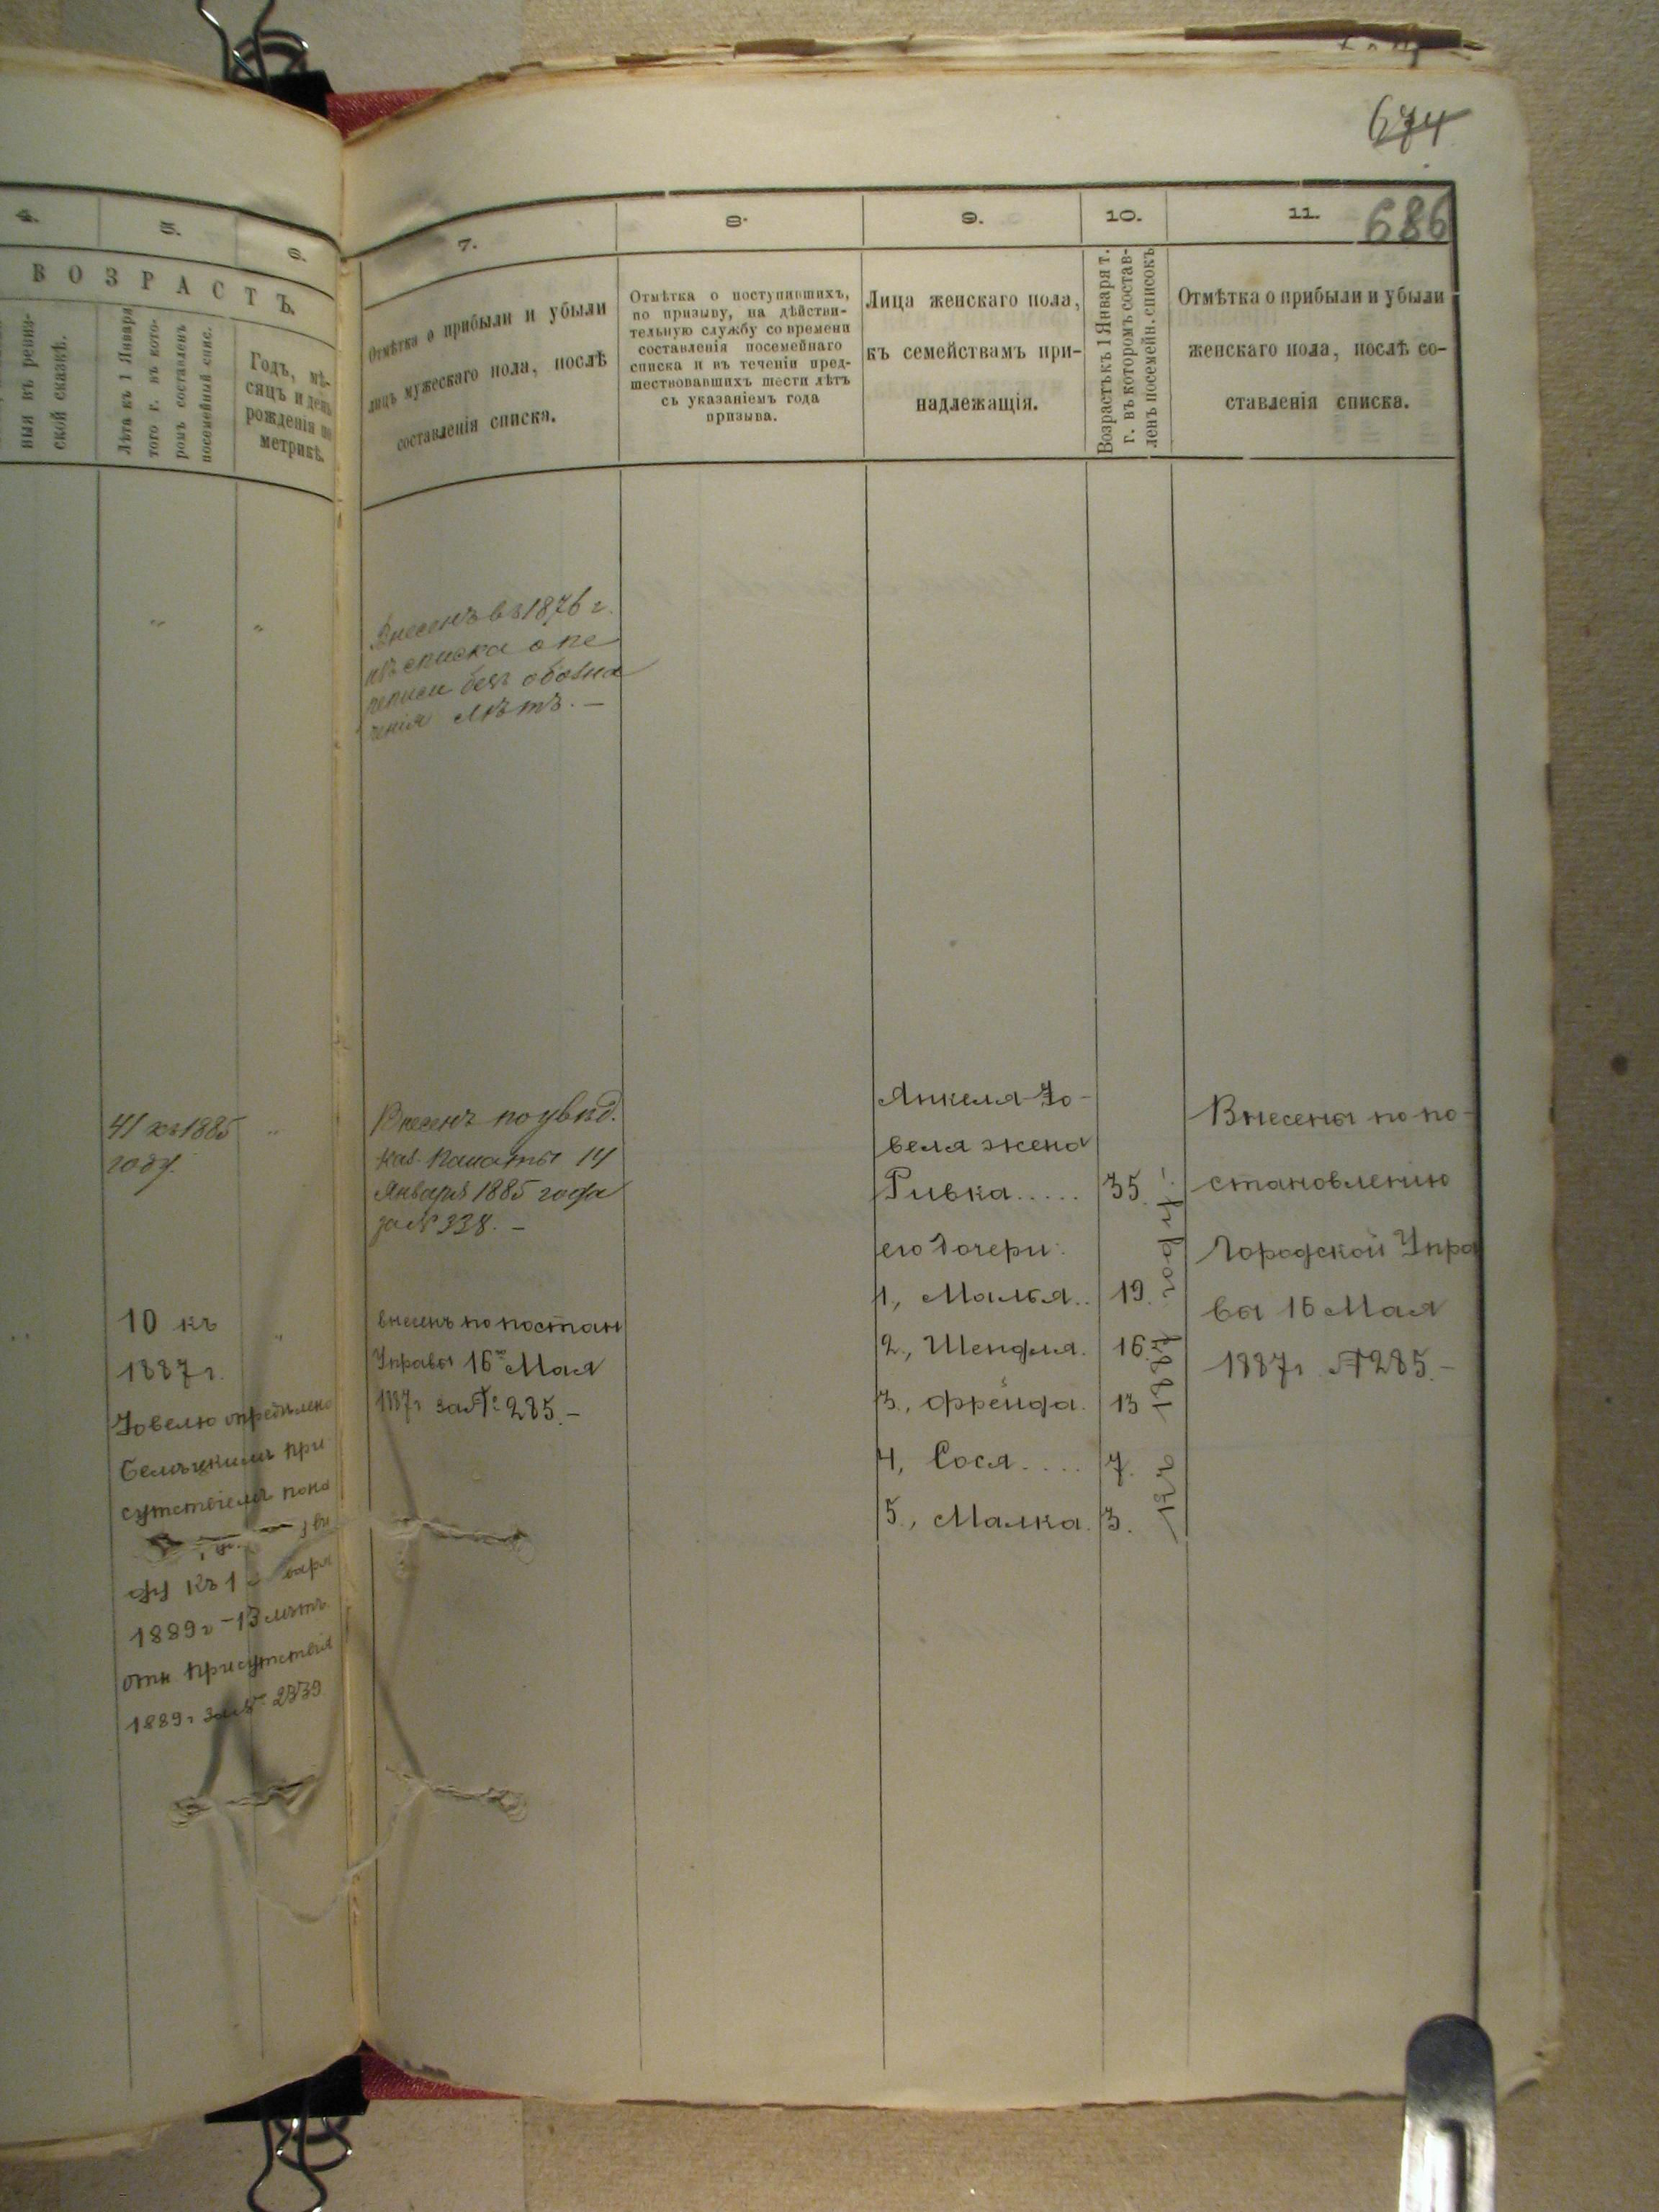 674
686
4.
5.
6.
ВОЗРАСТЪ.
ныя въ ревиз-
ской сказкѣ.
Лѣта къ 1 Января
того г. въ кото-
ромъ составленъ
посемейный спис.
Годъ, мѣ-
сяцъ и день
рожденія по
метрикѣ.
41 къ 1885
году.
10 къ
1887 г.
Іовелю опредѣлено
присутствіемъ
къ 1
1889 г - 13 лѣтъ
отн. присутствія
1889 г за № 2339
7.
Отмѣтка о прибыли и убыли
лицъ мужескаго пола, послѣ
составленія списка.
Внесенъ въ 1876 г.
изъ списка о пе
реписи безъ обозна
ченія лѣтъ. —
Внесенъ по увѣд.
каз. Палаты 14
Января 1885 года
за № 338. —
внесенъ по постан
Управы 16 Мая
1887 г за № 285. —
8.
Отмѣтка о поступившихъ,
по призыву, на дѣйстви-
тельную службу со времени
составленія посемейнаго
списка и въ теченіи пред-
шествовавшихъ шести лѣтъ
съ указаніемъ года
призыва.
9.
Лица женскаго пола,
къ семействамъ при-
надлежащія.
Янкеля Іо-
веля жена
Ривка.....
его дочери:
1, Малья..
2, Шендля.
3, Фрейда.
4, Сося....
5, Малка.
10.
Возрастъ къ 1 Января т.
г. въ которомъ состав-
ленъ посемейн. списокъ
35.
19.
16.
13
7.
3.
1887 году.
11.
Отмѣтка о прибыли и убыли
женскаго пола, послѣ со-
ставленія списка.
Внесены по по-
становленію
Городской Упра
вы 16 Мая
1887 г № 285. —